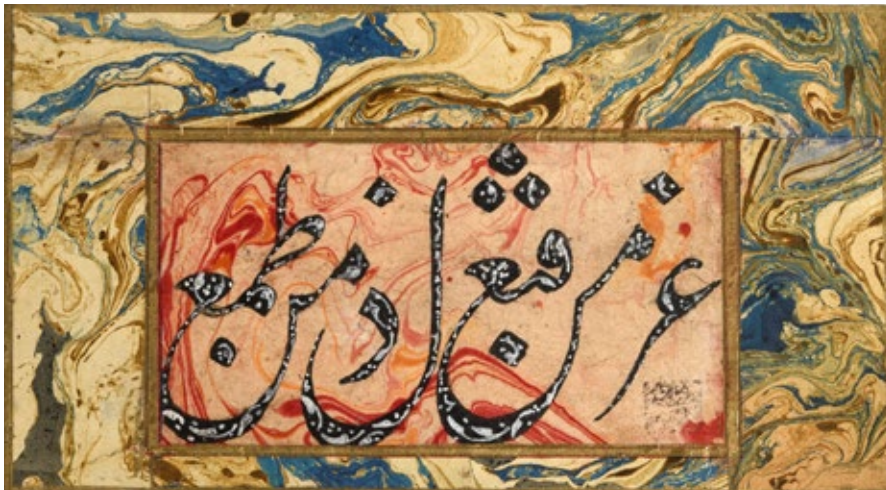 عز من قنع ذل من طمع